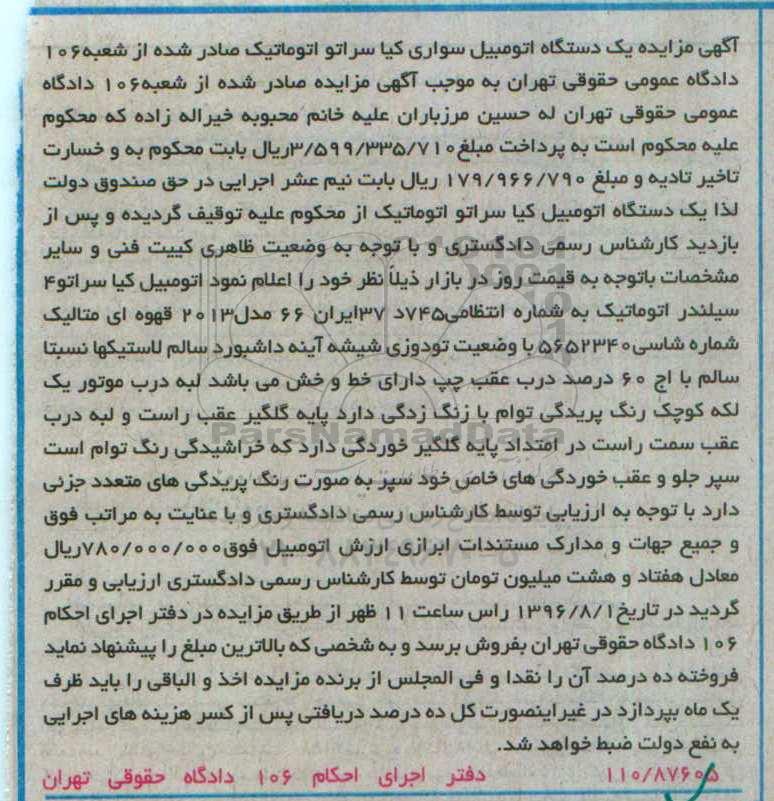 آگهی مزایده یک دستگاه اتومبیل سواری کیا سراتو اتوماتیک صادر شده از شعبه۱۰۶
دادگاه عمومی حقوقی تهران به موجب آگهی مزایده صادر شده از شعبه۱۰۶ دادگاه
عمومی حقوقی تهران له حسین مرزباران علیه خانم محبوبه خیراله زاده که محکوم
علیه محکوم است به پرداخت مبلغ۳/۵۹۹/۳۳۵/۷۱۰ریال بابت محکوم به و خسارت
تاخیر تادیه و مبلغ ۱۷۹/۹۶۶/۷۹۰ ریال بابت نیم عشر اجرایی در حق صندوق دولت
لذا یک دستگاه اتومبیل کیا سراتو اتوماتیک از محکوم علیه توقیف گردیده و پس از
بازدید کارشناس رسمی دادگستری و با توجه به وضعیت ظاهری کییت فنی و سایر
مشخصات باتوجه به قیمت روز در بازار ذیلاً نظر خود را اعلام نمود اتومبیل کیا سراتو۴
سیلندر اتوماتیک به شماره انتظامی۷۴۵د ۳۷ایران ۶۶ مدل۲۰۱۳ قهوه ای متالیک
شماره شاسی۵۶۵۲۳۴۰ با وضعیت تودوزی شیشه آینه داشبورد سالم لاستیکها نسبتا
سالم با اج ۶۰ درصد درب عقب چپ دارای خط و خش می باشد لبه درب موتور یک
لکه کوچک رنگ پریدگی توام با زنگ زدگی دارد پایه گلگیر عقب راست و لبه درب
عقب سمت راست در امتداد پایه گلگیر خوردگی دارد که خراشیدگی رنگ توام است
سپر جلو و عقب خوردگی های خاص خود سپر به صورت رنگ پریدگی های متعدد جزئی
دارد با توجه به ارزیابی توسط کارشناس رسمی دادگستری و با عنایت به مراتب فوق
و جمیع جهات و مدارک مستندات ابرازی ارزش اتومبیل فوق۷۸۰/۰۰۰/۰۰۰ریال
معادل هفتاد و هشت میلیون تومان توسط کارشناس رسمی دادگستری ارزیابی و مقرر
گردید در تاریخ۱۳۹۶/۸/۱ راس ساعت ۱۱ ظهر از طریق مزایده در دفتر اجرای احکام
۱۰۶ دادگاه حقوقی تهران بفروش برسد و به شخصی که بالاترین مبلغ را پیشنهاد نماید
فروخته ده درصد آن را نقدا و فی المجلس از برنده مزایده اخذ و الباقی را باید ظرف
یک ماه بپردازد در غیر اینصورت کل ده درصد دریافتی پس از کسر هزینه های اجرایی
به نفع دولت ضبط خواهد شد.
۱۱۰/۸۷۶۰۵ دفتر اجرای احکام ۱۰۶ دادگاه حقوقی تهران
ParsNamadData